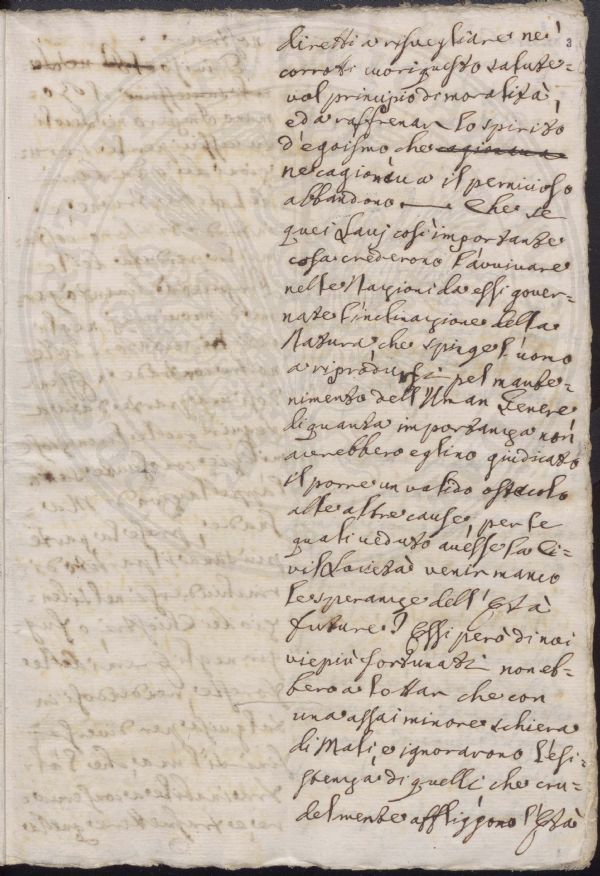 3
diretti a risvegliare ne'
corrotti cuori questo salute=
vol principio di moralità,
ed a raffrenar lo spirito
d'egoismo che cagionava
ne cagionava il pernicioso
abbandono — Che se
quei Savj così importante
cosa crederono l'avvivare
nelle Nazioni da essi gover=
nate l'inclinazione della
Natura che spinge l'uomo
a riprodursi pel mante=
nimento dell'Uman Genere
di quanta importanza non
averebbero eglino giudicato
il porre un valido ostacolo
alle altre cause, per le
quali veduto avesse la Ci=
vil Società venir manco
le speranze dell'Età
future? Essi però di noi
vie più fortunati non eb=
bero a lottar che con
una assai minore schiera
di Mali e ignoravono l'esi=
stenza di quelli che cru=
delmente affliggono l'Età